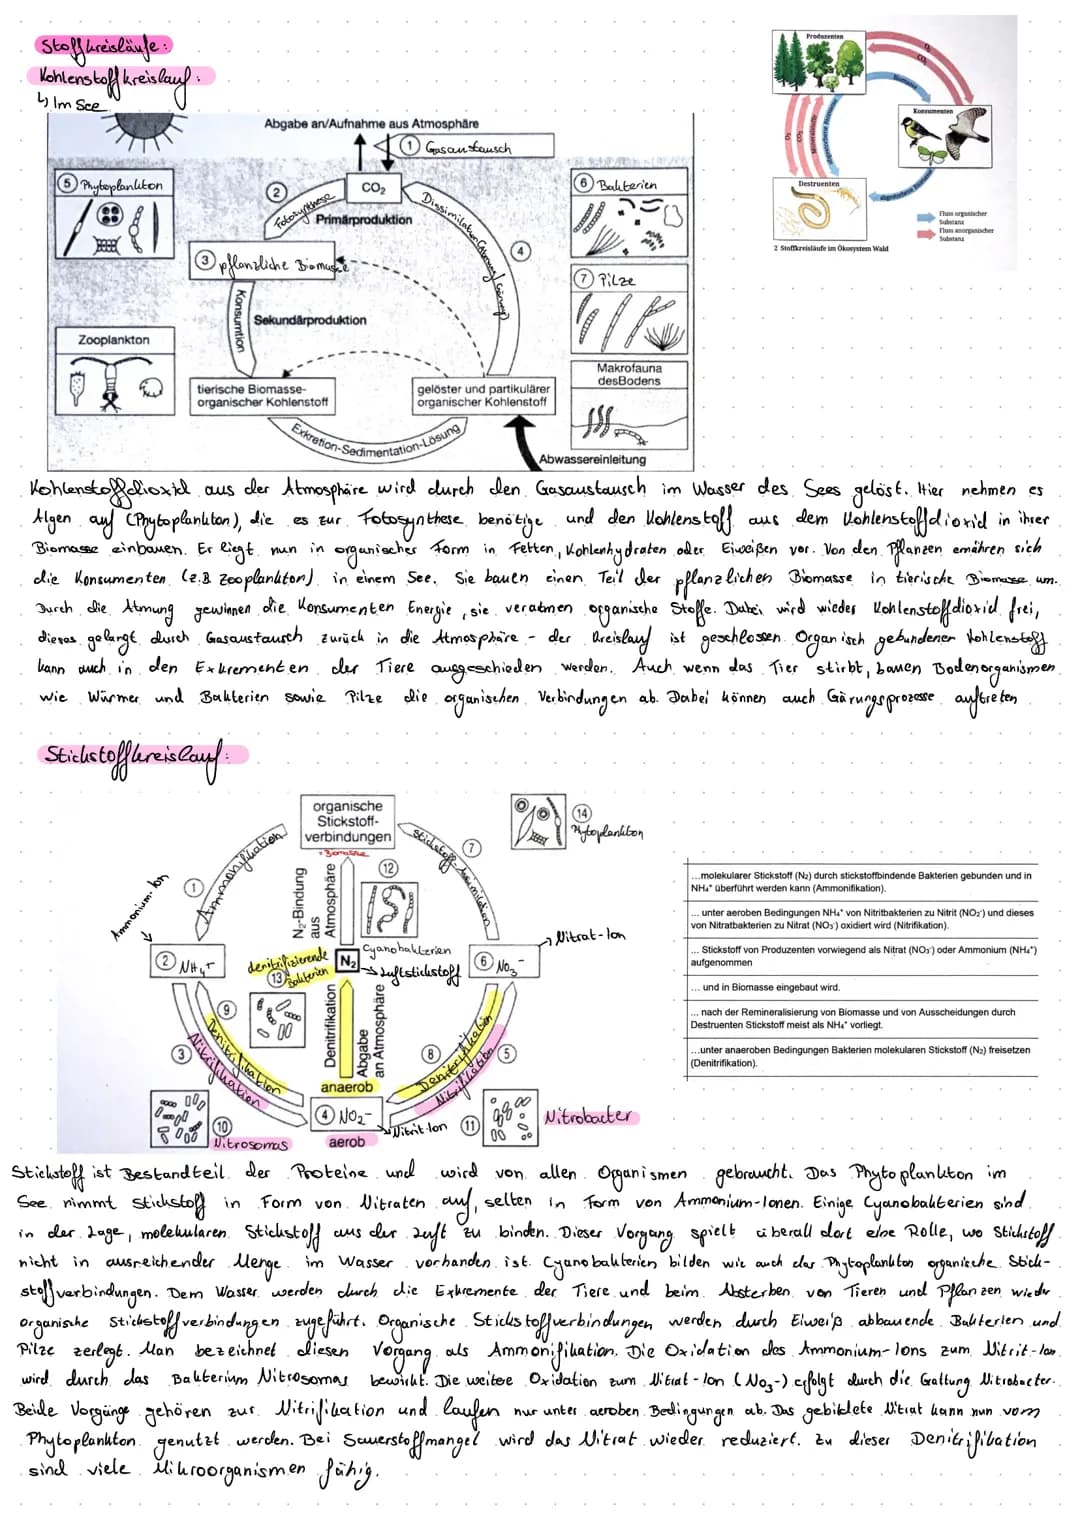 Stoffkreisläufe:
Kohlenstoffkreislauf:
↳ Im See
Abgabe an/Aufnahme aus Atmosphäre
① Gasaustausch
CO₂
② Fotosynthese
Primärproduktion
Dissimilation (Atmung, Gärung)
④
③ pflanzliche Biomasse
Konsumtion
Sekundärproduktion
tierische Biomasse-
organischer Kohlenstoff
gelöster und partikulärer
organischer Kohlenstoff
Exkretion-Sedimentation-Lösung
Abwassereinleitung
⑤ Phytoplankton
Zooplankton
⑥ Bakterien
⑦ Pilze
Makrofauna
desBodens
Produzenten
O₂
CO₂
Biomasse
Konsumenten
O₂
CO₂
Mineralstoffe
abgestorbene Biomasse
abgestorbene Biomasse
Destruenten
Fluss organischer
Substanz
Fluss anorganischer
Substanz
2 Stoffkreisläufe im Ökosystem Wald
Kohlenstoffdioxid aus der Atmosphäre wird durch den Gasaustausch im Wasser des Sees gelöst. Hier nehmen es
Algen auf (Phytoplankton), die es zur Fotosynthese benötige und den Kohlenstoff aus dem Kohlenstoffdioxid in ihrer
Biomasse einbauen. Er liegt nun in organischer Form in Fetten, Kohlenhydraten oder Eiweißen vor. Von den Pflanzen ernähren sich
die Konsumenten (z.B Zooplankton) in einem See. Sie bauen einen Teil der pflanzlichen Biomasse in tierische Biomasse um.
Durch die Atmung gewinnen die Konsumenten Energie, sie veratmen organische Stoffe. Dabei wird wieder Kohlenstoffdioxid frei,
dieses gelangt durch Gasaustausch zurück in die Atmosphäre - der Kreislauf ist geschlossen. Organisch gebundener Kohlenstoff
kann auch in den Exkrementen der Tiere ausgeschieden werden. Auch wenn das Tier stirbt, bauen Bodenorganismen
wie Würmer und Bakterien sowie Pilze die organischen Verbindungen ab. Dabei können auch Gärungsprozesse auftreten
Stickstoffkreislauf:
organische
Stickstoff-
verbindungen
= Biomasse
① Ammonifikation
Ammonium-Ion
② NH₄⁺
N₂-Bindung
aus
Atmosphäre
⑫
Cyanobakterien
N₂
→ Luftstickstoff
denitrifizierende
⑬ Bakterien
Stickstoff-Assimilation
⑦
⑭
Phytoplankton
⑥ NO₃⁻
→ Nitrat-Ion
⑨ Denitrifikation
③ Nitrifikation
Denitrifikation
Abgabe
an Atmosphäre
anaerob
⑧ Denitrifikation
Nitrifikation ⑤
④ NO₂⁻
Nitrit-Ion
aerob
⑩
Nitrosomas
⑪
Nitrobacter
...molekularer Stickstoff (N₂) durch stickstoffbindende Bakterien gebunden und in
NH₄⁺ überführt werden kann (Ammonifikation).
... unter aeroben Bedingungen NH₄⁺ von Nitritbakterien zu Nitrit (NO₂⁻) und dieses
von Nitratbakterien zu Nitrat (NO₃⁻) oxidiert wird (Nitrifikation).
... Stickstoff von Produzenten vorwiegend als Nitrat (NO₃⁻) oder Ammonium (NH₄⁺)
aufgenommen
... und in Biomasse eingebaut wird.
... nach der Remineralisierung von Biomasse und von Ausscheidungen durch
Destruenten Stickstoff meist als NH₄⁺ vorliegt.
...unter anaeroben Bedingungen Bakterien molekularen Stickstoff (N₂) freisetzen
(Denitrifikation).
Stickstoff ist Bestandteil der Proteine und wird von allen Organismen gebraucht. Das Phytoplankton im
See nimmt Stickstoff in Form von Nitraten auf, selten in Form von Ammonium-Ionen. Einige Cyanobakterien sind
in der Lage, molekularen Stickstoff aus der Luft zu binden. Dieser Vorgang spielt überall dort eine Rolle, wo Stickstoff
nicht in ausreichender Menge im Wasser vorhanden ist. Cyanobakterien bilden wie auch das Phytoplankton organische Stick-
stoffverbindungen. Dem Wasser werden durch die Exkremente der Tiere und beim Absterben von Tieren und Pflanzen wieder
organische Stickstoffverbindungen zugeführt. Organische Stickstoffverbindungen werden durch Eiweiß abbauende Bakterien und
Pilze zerlegt. Man bezeichnet diesen Vorgang als Ammonifikation. Die Oxidation des Ammonium-Ions zum Nitrit-Ion
wird durch das Bakterium Nitrosomas bewirkt. Die weitere Oxidation zum Nitrat-Ion (NO₃-) erfolgt durch die Gattung Nitrobacter.
Beide Vorgänge gehören zur Nitrifikation und laufen nur unter aeroben Bedingungen ab. Das gebildete Nitrat kann nun vom
Phytoplankton genutzt werden. Bei Sauerstoffmangel wird das Nitrat wieder reduziert. Zu dieser Denitrifikation
sind viele Mikroorganismen fähig.